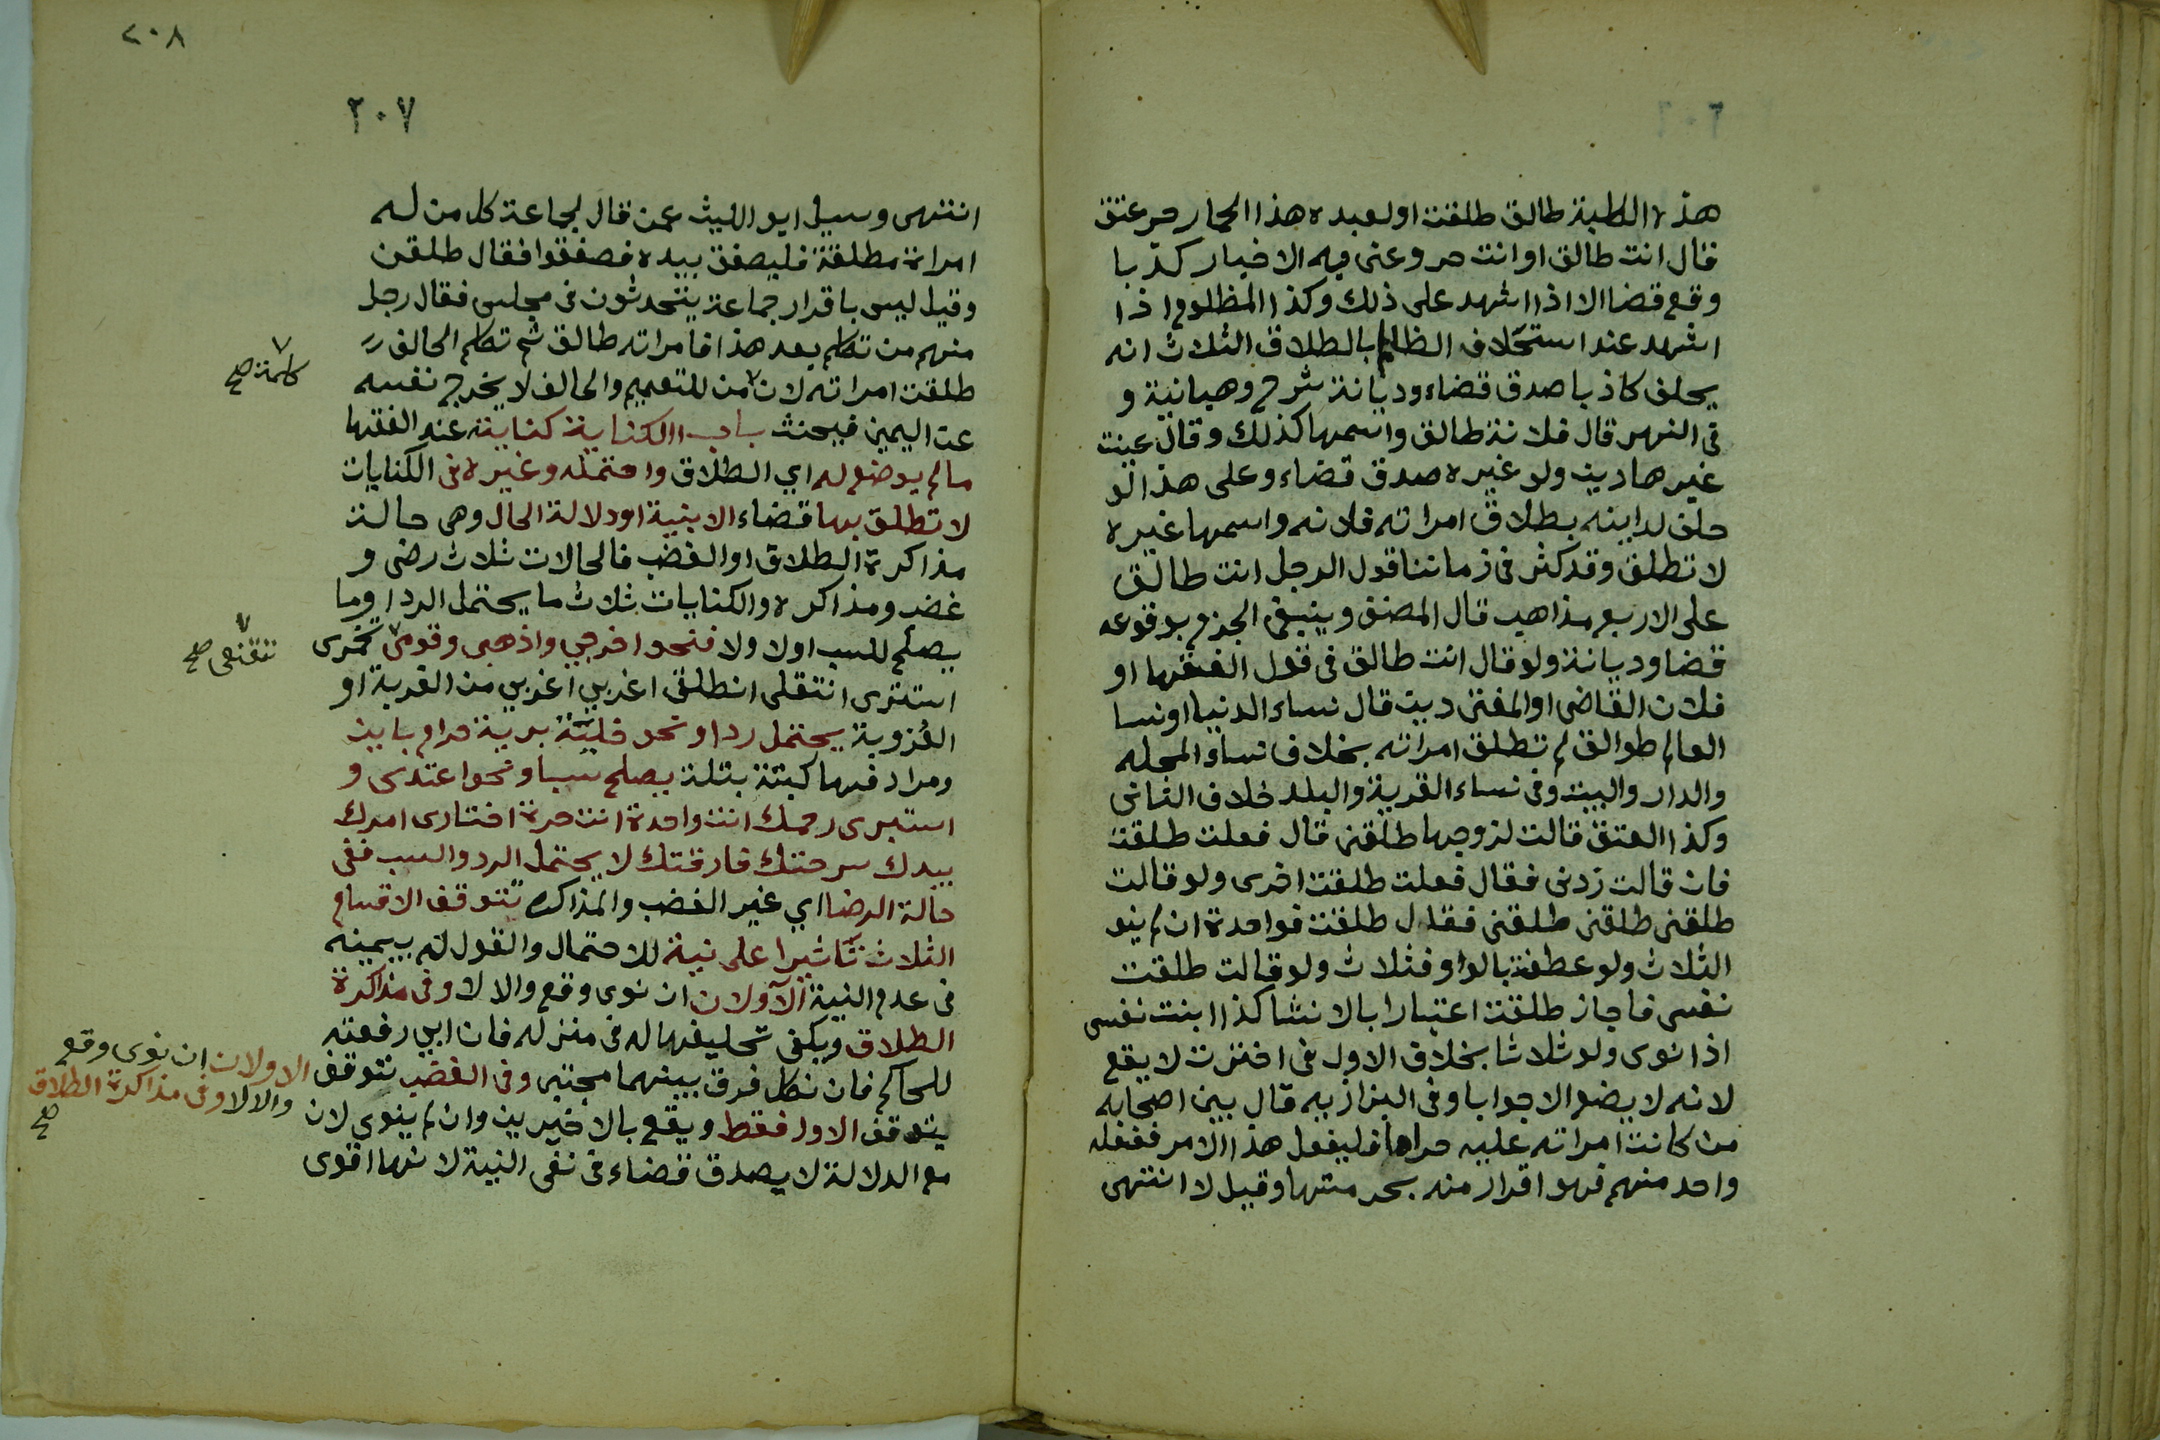 هذه الكلبة طالق طلقت او لعبده هذا الحمار حر عتق
قال انت طالق او انت حر وعنى به الاخبار كذبا
وقع قضا الا اذا اشهد على ذلك وكذا المظلوم اذا
اشهد عند استحلاف الظالم بالطلاق الثلاث انه
يحلف كاذبا صدق قضاء وديانة شرح وهبانية و
فى النهر قال فلانة طالق واسمها كذلك وقال عينت
غيرها دين ولو غيره صدق قضاء وعلى هذا لو
حلف لداينه بطلاق امراته فلانه واسمها غيره
لا تطلق وقد كثر فى زماننا قول الرجل انت طالق
على الاربع مذاهب قال المصنف وينبغى الجزم بوقوعه
قضا وديانة ولو قال انت طالق فى قول الفقها او
فلان القاضى او المفتى دين قال نساء الدنيا او نسا
العالم طوالق لم تطلق امراته بخلاف نساء المحله
والدار والبيت وفى نساء القرية والبلد خلاف الثانى
وكذا العتق قالت لزوجها طلقنى قال فعلت طلقت
فان قالت زدنى فقال فعلت طلقت اخرى ولو قالت
طلقنى طلقنى طلقنى فقال طلقت فواحدة ان لم ينو
الثلاث ولو عطفت بالواو فثلاث ولو قالت طلقت
نفسى فاجاز طلقت اعتبارا بالانشا كذا ابنت نفسى
اذا نوى ولو ثلاثا بخلاف الاول فى اخترت لا يقع
لانه لا يضع الا جوابا وفى البزازيه قال بين اصحابه
من كانت امراته عليه حراما فليفعل هذا الامر ففعله
واحد منهم فهو اقرار منه بحرمتها وقيل لا انتهى
٢٠٨
٢٠٧
انتهى وسيل ابو الليث عمن قال لجماعة كل من له
امراة مطلقة فليصفق بيده فصفقوا فقال طلقن
وقيل ليس باقرار جماعة يتحدثون فى مجلس فقال رجل
منهم من تكلم بعد هذا فامراته طالق ثم تكلم الحالف
طلقت امراته لان من للتعميم والحالف لا يخرج نفسه
كلمة صح
عن اليمين فيحنث باب الكناية كنايته عند الفقها
ما لم يوضع له اي الطلاق واحتمله وغيره فى الكنايات
لا تطلق بها قضاء الا بنية او دلالة الحال وهى حالة
مذاكرة الطلاق او الغضب فالحالات ثلاث رضى و
غضب ومذاكره والكنايات ثلاث ما يحتمل الرد او ما
يصلح للسب او لا ولا فنحو اخرجي واذهبى وقومى تخمرى
تقنعى صح
استترى انتقلى انطلقى اغربي اعزبي من الغربة او
العُزوبة يحتمل ردا ونحو خليّة برية حرام باين
ومرادفها كبتة بتلة يصلح سبا ونحو اعتدى و
استبرى رحمك انت واحدة انت حرة اختارى امرك
بيدك سرحتك فارقتك لا يحتمل الرد والسب ففى
حالة الرضا اي غير الغضب والمذاكره تتوقف الاقسام
الثلاث تاثيرا على نية للاحتمال والقول له بيمينه
فى عدم النية الاولان ان نوى وقع والا لا وفى مذاكرة
الطلاق ويكفى تحليفها له فى منزله فان ابى رفعته
للحاكم فان نكل فرق بينهما مجتبى وفى الغضب تتوقف
الاولان ان نوى وقع
والا لا وفى مذاكرة الطلاق
صح
يتوقف الاول فقط ويقع بالاخيرين وان لم ينوى لان
مع الدلالة لا يصدق قضاء فى نفى النية لانها اقوى